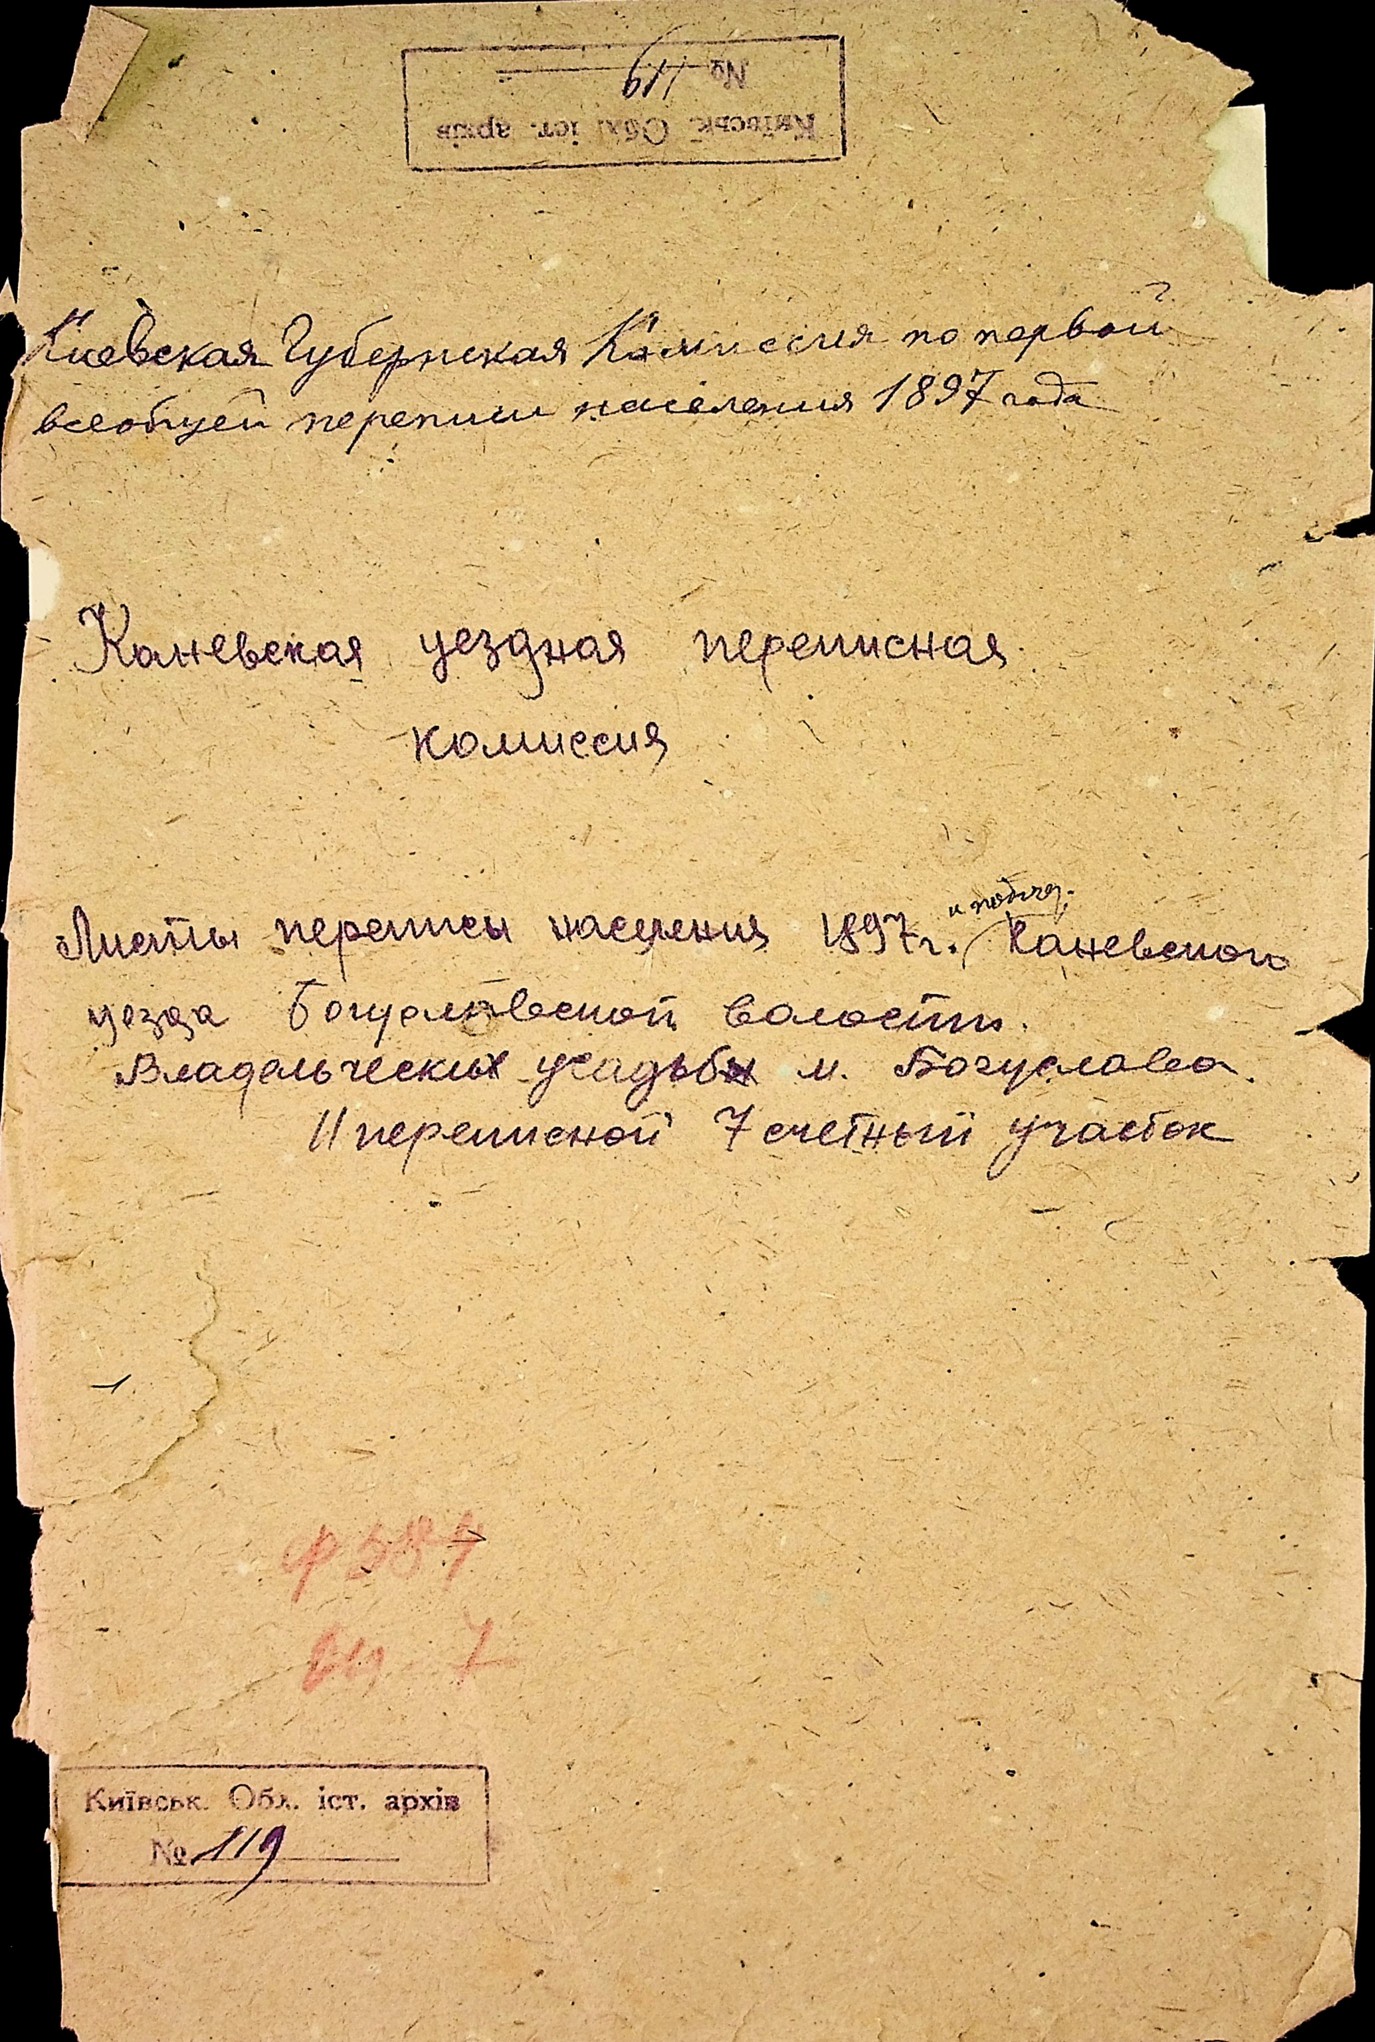 Київськ. Обл. іст. архів
№ 119
Киевская Губернская Комиссия по первой
всеобщей переписи населения 1897 года
Каневская уездная переписная
комиссия
и подгор.
Листы переписи населения 1897 г. Каневского
уезда Богуславской волости.
Владельческих усадьбы м. Богуслава.
II переписной 7 счетный участок
Ф 384
7
Київськ. Обл. іст. архів
№ 119